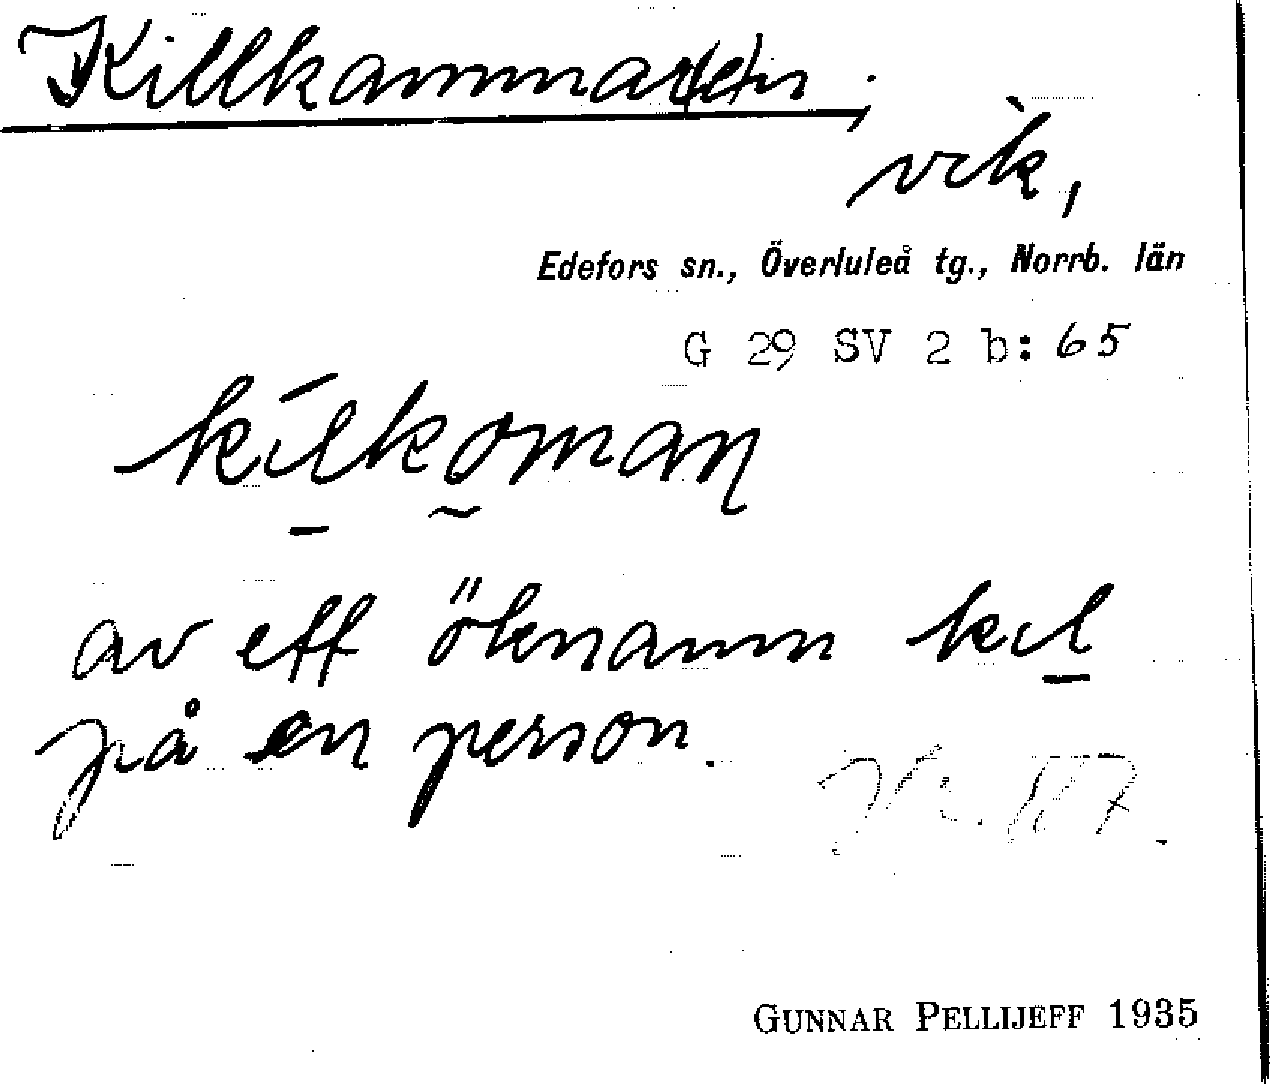 Killkammar(e)n,
vik,
Edefors sn., Överluleå tg., Norrb. län
G 29 SV 2 b: 65
kilkoman
av ett öknamn kil
på en person.
GUNNAR PELLIJEFF 1935